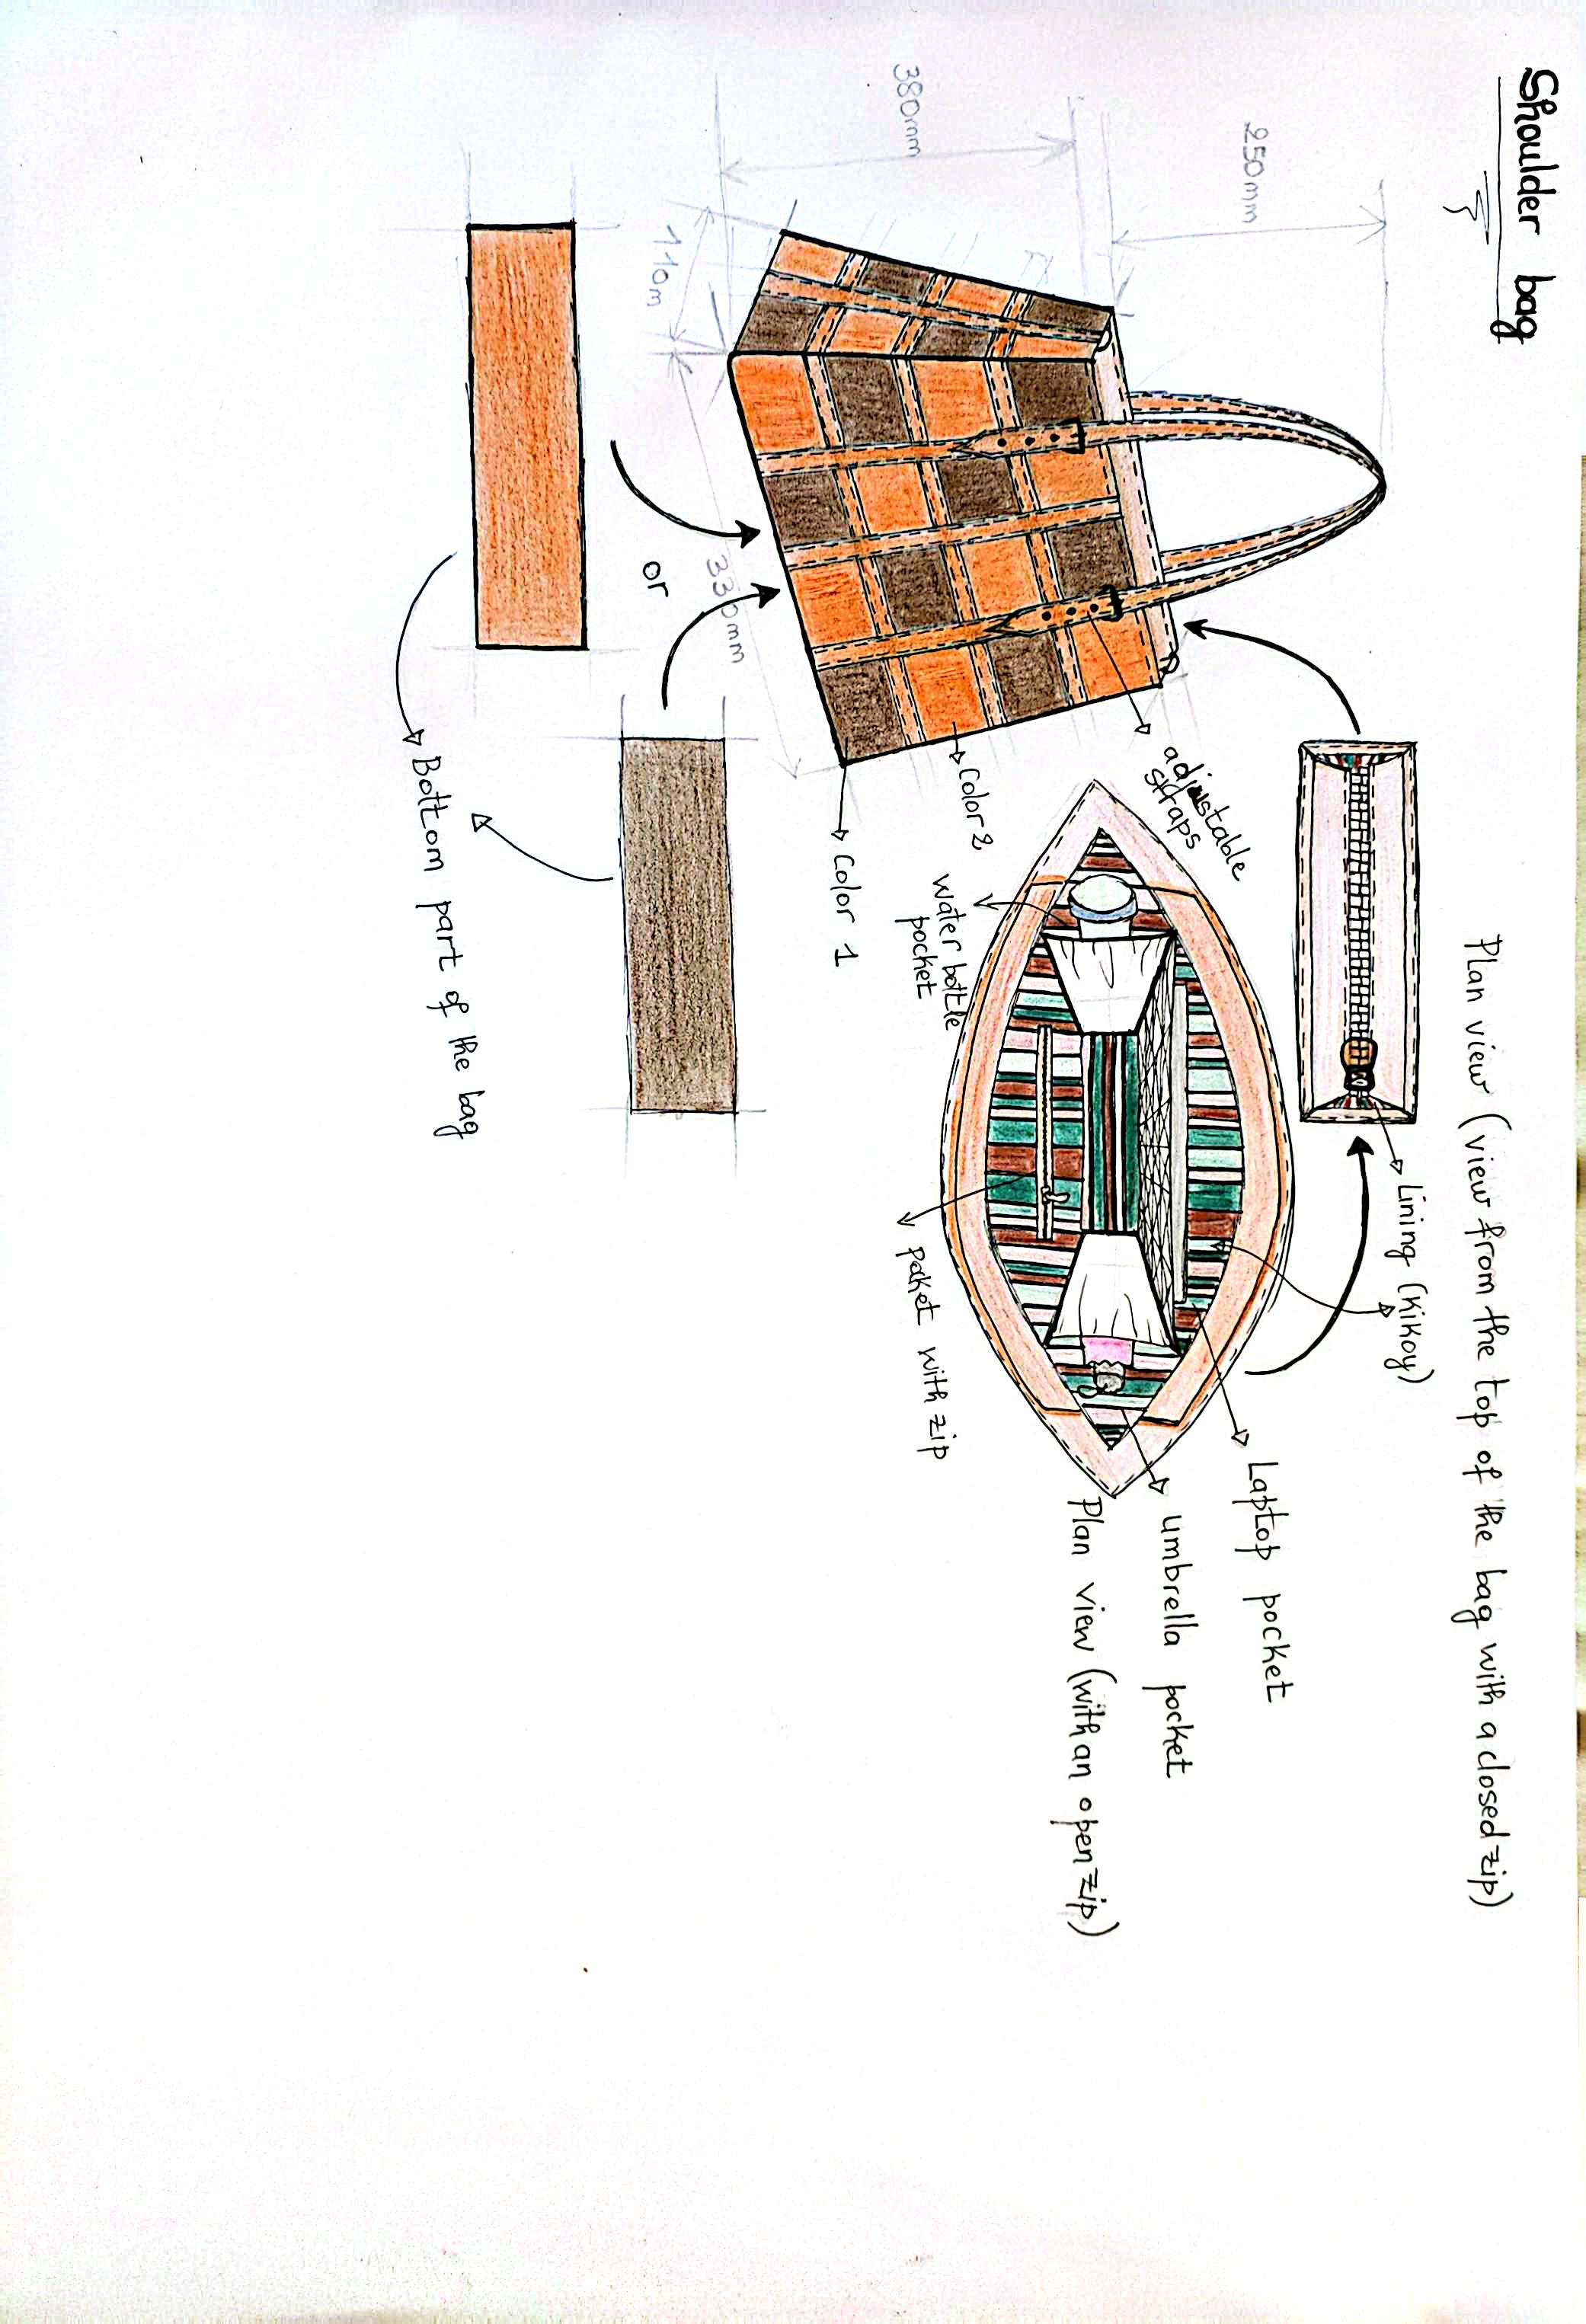 Shoulder bag
Plan view (view from the top of the bag with a closed zip)
Lining (Kikoy)
250mm
380mm
110m
330mm
adjustable
straps
Color 2
Color 1
water bottle
pocket
Laptop pocket
umbrella pocket
Plan view (with an open zip)
poket with zip
or
Bottom part of the bag